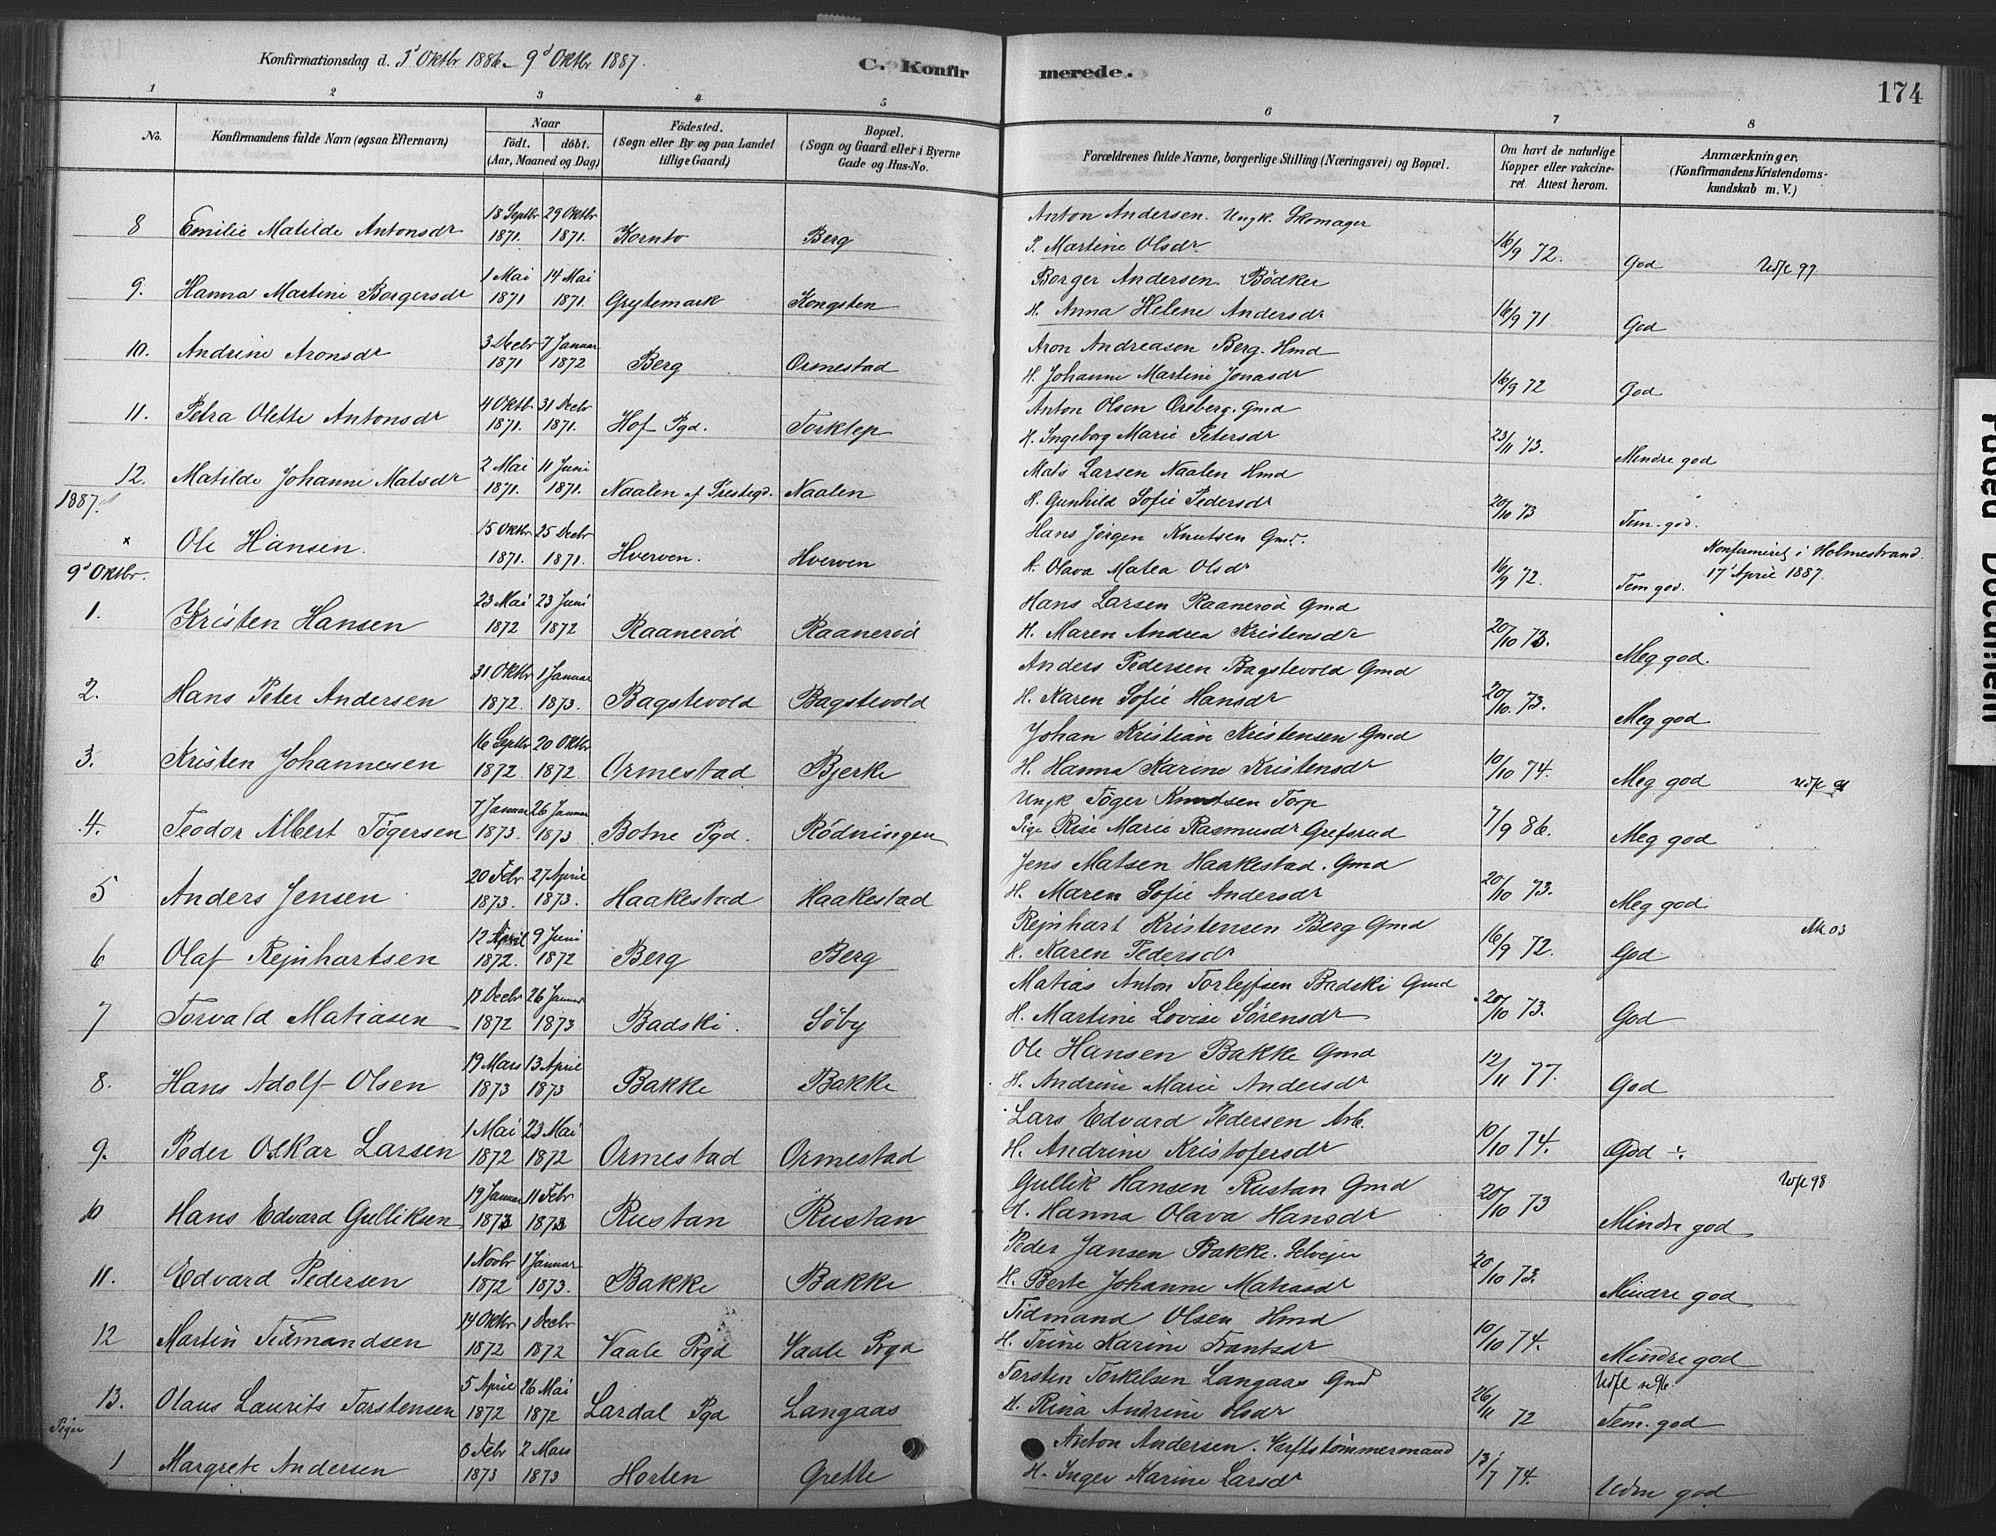 Konfirmationsdag d. 3d Oktbr 1886 – 9d Oktbr 1887.
C. Konfirmerede.
174
1 2 3 4 5 6 7 8
No. Konfirmandens fulde Navn (ogsaa Efternavn) Naar födt. döbt. (Aar, Maaned og Dag) Födested. (Sogn eller By og paa Landet tillige Gaard) Bopæl. (Sogn og Gaard eller i Byerne Gade og Hus-No. Forældrenes fulde Navne, borgerlige Stilling (Næringsvei) og Bopæl. Om havt de naturlige Kopper eller vakcineret. Attest herom. Anmærkninger. (Konfirmandens Kristendomskundskab m. V.)
18 Septbr 29 Oktbr Anton Andersen. Ungk. Skomager
8 Emilie Matilde Antonsdr 1871. 1871. Kornto Berg P. Martine Olsdr 16/9 72. God
1 Mai 14 Mai Borger Andersen Bödker
9. Hanna Martine Borgersdr 1871 1871. Grytemark Kongsten H. Anna Helene Andersdr 16/9 71 God
3 Decbr 7 Januar Aron Andreasen Berg. Hmd
10. Andrine Aronsdr 1871 1872 Berg Ormestad H. Johanne Martine Jonasdr 16/9 72 God
4 Oktbr. 31 Decbr Anton Olsen Oreberg. Gmd
11. Petra Olette Antonsdr 1871. 1871. Hof Pgd. Torklep H. Ingeborg Marie Petersdr 23/11 73. Mindre god
2 Mai 11 Juni Mats Larsen Naalen Hmd
12. Matilde Johanne Matsdr 1871. 1871. Naalen af Prestegd. Naalen H. Gunhild Sofie Pedersdr 20/10 73 Tem. god.
1887.
15 Oktbr 25 Decbr Hans Jörgen Knutsen Gmd. Konfirmeret i Holmestrand
x Ole Hansen. 1871. 1871. Hverven. Hverven H. Olava Matea Olsdr 16/9 72. Tem god. 17 April 1887.
9d Oktbr.
23 Mai 23 Juni Hans Larsen Raaneröd Gmd
1. Kristen Hansen 1872 1872 Raaneröd Raaneröd H. Maren Andrea Kristensdr 20/10 73. Meg god.
31 Oktbr 1 Januar Anders Pedersen Bagstevold Gmd
2. Hans Peter Andersen 1872. 1873. Bagstevold Bagstevold H. Karen Sofie Hansdr 20/10. 73. Meg god
16 Septbr 20 Oktbr Johan Kristian Kristensen Gmd
3. Kristen Johannesen 1872. 1872. Ormestad Bjerke H. Hanna Karine Kristensdr 10/10 74. Meg god
7 Januar 26 Januar Ungk Töger Knutsen Torp
4. Teodor Albert Tögersen 1873. 1873. Botne Pgd. Rödningen Pige Rise Marie Rasmusdr Grefsrud 7/9 86. Meg god
20 Febr 27 April Jens Matsen Haakestad. Gmd
5 Anders Jensen 1873. 1873. Haakestad Haakestad H. Maren Sofie Andersdr 20/10 73. Meg god.
12 April 9 Juni Rejnhart Kristensen Berg Gmd
6 Olaf Rejnhartsen 1872. 1872 Berg Berg H. Karen Pedersdr 16/9 72. God.
13 Decbr 26 Januar Matias Anton Torlejfsen Badski Gmd
7 Torvald Matiasen 1872 1873 Badski. Söby H. Martine Lovise Sörensdr 20/10 73. God
19 Mars 13 April Ole Hansen Bakke Gmd
8. Hans Adolf Olsen 1873 1873 Bakke Bakke H. Andrine Marie Andersdr 12/11 77. God
1 Mai 23 Mai Lars Edvard Pedersen Arb.
9. Peder Oskar Larsen 1872 1872 Ormestad Ormestad H. Andrine Kristofersdr 10/10 74. God
19 Januar 11 Febr Gullik Hansen Rustan Gmd
10 Hans Edvard Gulliksen 1873 1873 Rustan Rustan H. Hanna Olava Hansdr 20/10 73 Mindre god
1 Novbr 1 Januar Peder Jansen Bakke. Selvejer
11. Edvard Pedersen 1872 1873. Bakke Bakke H. Berte Johanne Matiasdr 20/10 73. Mindre god
14 Oktbr 1 Decbr Tidmand Olsen Hmd
12 Martin Tidmandsen 1872 1872 Vaale Prgd Vaale Prgd H. Trine Karine Frantsdr 10/10 74. Mindre god
5 April 26 Mai Torsten Torkelsen Langaas Gmd
13. Olaus Laurits Torstensen 1872 1872 Lardal Pgd Langaas H. Rina Andrine Olsdr 26/11 72 Tem. god
Piger
Febr 2 Mars Anton Andersen. Verftstömmermand
1 Margrete Andersen 1873 1873 Horten Grette H. Inger Karine Larsdr 13/7 74. god